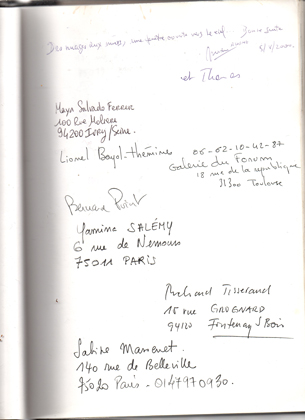 Des nuages aux murs, une fenêtre ouverte vers le ciel
et Thomas
Maya Salvado Ferreira
100 Rue Molière
94200 Ivry/Seine.
Lionel Bayol-Thémines 06-62-10-42-87
Galerie du Forum
18 rue de la république
31300 Toulouse
Bernard Point
Yamina SALÉMY
6 rue de Nemours
75011 PARIS
Richard Tisserand
15 rue GROGNARD
94120 Fontenay S/Bois
Sabine Massenet
140 rue de Belleville
75020 Paris - 0147970930.